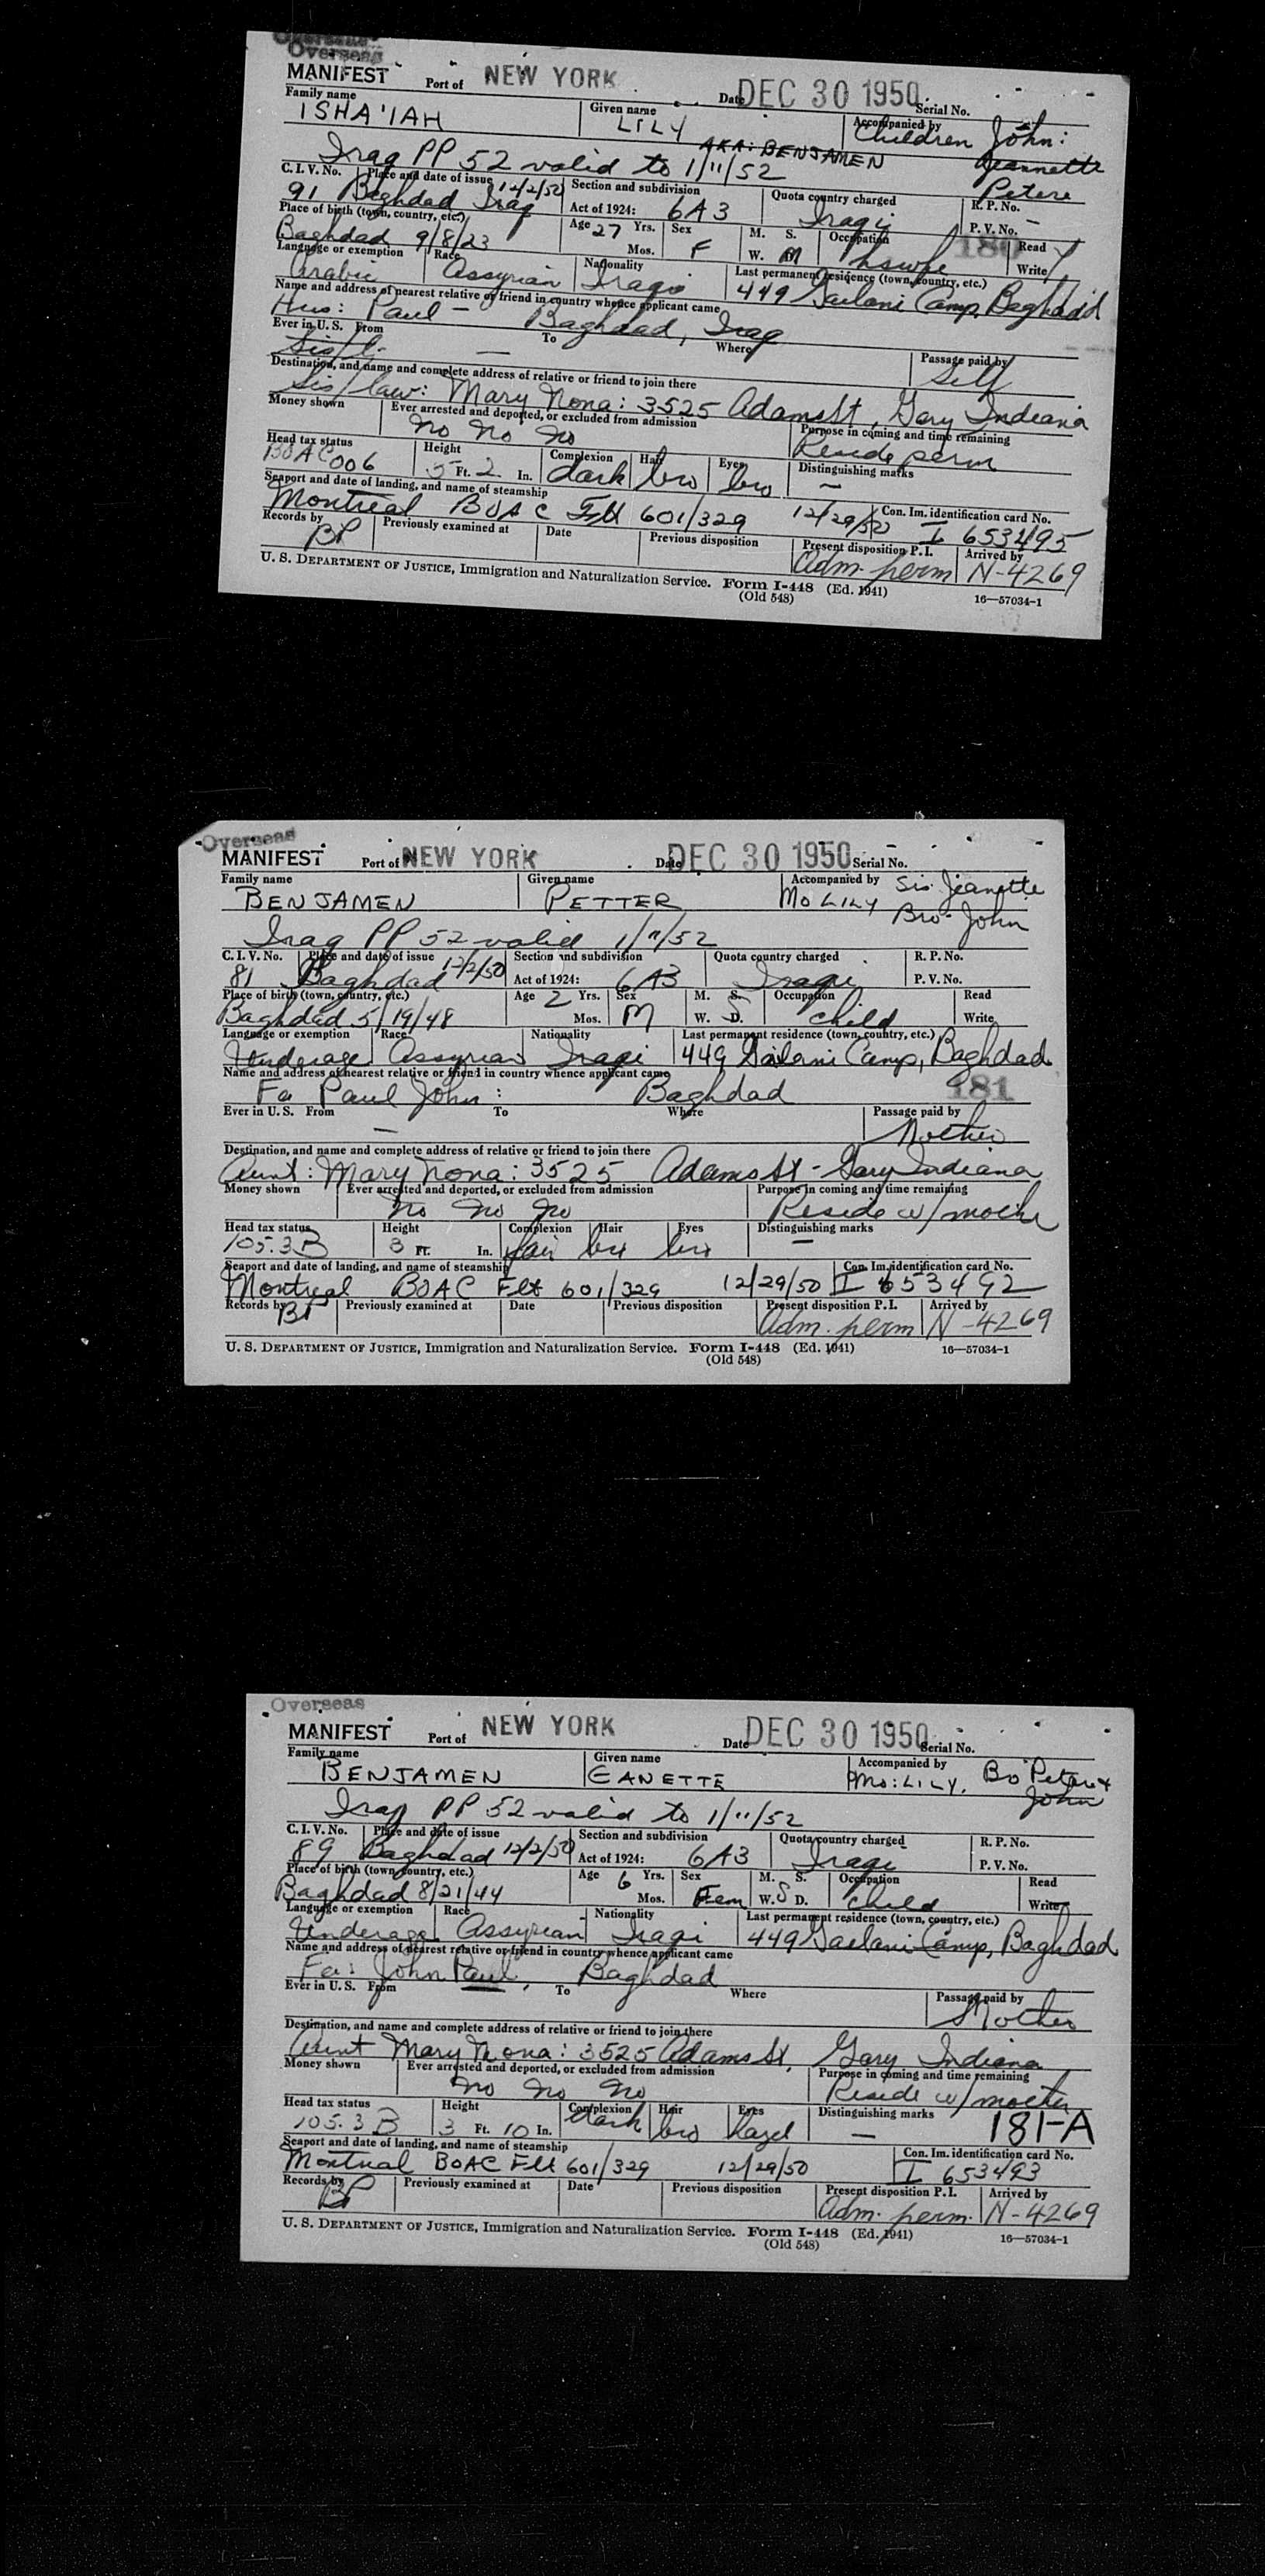 Overseas
Overseas
MANIFEST Port of NEW YORK Date DEC 30 1950 Serial No.
Family name Given name Accompanied by
ISHA'IAH LILY Children John:
AKA: BENJAMEN Jeannette
Iraq PP 52 valid to 1/11/52 Petere
C. I. V. No. Place and date of issue Section and subdivision Quota country charged R. P. No.
91 Baghdad Iraq 12/2/50 Act of 1924: 6A3 Iraqi P. V. No. —
Place of birth (town, country, etc.) Age 27 Yrs. Sex M. S. Occupation 180 Read
Baghdad 9/8/23 Mos. F W. D. M hswfe Write
Language or exemption Race Nationality Last permanent residence (town, country, etc.)
Arabic Assyrian Iraqi 449 Gailani Camp, Baghdad
Name and address of nearest relative or friend in country whence applicant came
Hus: Paul — Baghdad, Iraq
Ever in U. S. From To Where Passage paid by
— Self
Destination, and name and complete address of relative or friend to join there
Sis/law: Mary Nona: 3525 Adams St, Gary Indiana
Money shown Ever arrested and deported, or excluded from admission Purpose in coming and time remaining
No No No Reside perm
Head tax status Height Complexion Hair Eyes Distinguishing marks
BOAC006 5 Ft. 2 In. dark bro bro —
Seaport and date of landing, and name of steamship Con. Im. identification card No.
Montreal BOAC Flt 601/329 12/29/50 I 653495
Records by Previously examined at Date Previous disposition Present disposition P. I. Arrived by
BP Adm. perm N-4269
U. S. DEPARTMENT OF JUSTICE, Immigration and Naturalization Service. Form I-448 (Ed. 1941) 16—57034-1
(Old 548)
Overseas
MANIFEST Port of NEW YORK Date DEC 30 1950 Serial No.
Family name Given name Accompanied by Sis. Jeanette
BENJAMEN PETTER Mo LILY Bro- John
Iraq PP 52 valid 1/11/52
C. I. V. No. Place and date of issue Section and subdivision Quota country charged R. P. No.
81 Baghdad 12/2/50 Act of 1924: 6A3 Iraqi P. V. No.
Place of birth (town, country, etc.) Age 2 Yrs. Sex M. S. Occupation Read
Baghdad 5/19/48 Mos. M W. D. S child Write
Language or exemption Race Nationality Last permanent residence (town, country, etc.)
Underage Assyrian Iraqi 449 Gailani Camp, Baghdad
Name and address of nearest relative or friend in country whence applicant came
Fa Paul John: Baghdad 181
Ever in U. S. From To Where Passage paid by
— Mother
Destination, and name and complete address of relative or friend to join there
Aunt: Mary Nona: 3525 Adams St - Gary Indiana
Money shown Ever arrested and deported, or excluded from admission Purpose in coming and time remaining
No No No Reside w/ mother
Head tax status Height Complexion Hair Eyes Distinguishing marks
105.3B 3 Ft. In. fair bro bro —
Seaport and date of landing, and name of steamship Con. Im. identification card No.
Montreal BOAC Flt 601/329 12/29/50 I 653492
Records by Previously examined at Date Previous disposition Present disposition P. I. Arrived by
BP Adm. perm N-4269
U. S. DEPARTMENT OF JUSTICE, Immigration and Naturalization Service. Form I-448 (Ed. 1941) 16—57034-1
(Old 548)
Overseas
MANIFEST Port of NEW YORK Date DEC 30 1950 Serial No.
Family name Given name Accompanied by
BENJAMEN EANETTE Mo: LILY. Bo Peter &
John
Iraq PP 52 valid to 1/11/52
C. I. V. No. Place and date of issue Section and subdivision Quota country charged R. P. No.
89 Baghdad 12/2/50 Act of 1924: 6A3 Iraqi P. V. No.
Place of birth (town, country, etc.) Age 6 Yrs. Sex M. S. Occupation Read
Baghdad 8/21/44 Mos. Fem W. S D. child Write
Language or exemption Race Nationality Last permanent residence (town, country, etc.)
Underage Assyrian Iraqi 449 Gailani Camp, Baghdad
Name and address of nearest relative or friend in country whence applicant came
Fa: John Paul, Baghdad
Ever in U. S. From To Where Passage paid by
Mother
Destination, and name and complete address of relative or friend to join there
Aunt Mary Nona: 3525 Adams St, Gary Indiana
Money shown Ever arrested and deported, or excluded from admission Purpose in coming and time remaining
No No No Reside w/ mother
Head tax status Height Complexion Hair Eyes Distinguishing marks 181-A
105.3B 3 Ft. 10 In. dark bro hazel —
Seaport and date of landing, and name of steamship Con. Im. identification card No.
Montreal BOAC Flt 601/329 12/29/50 I 653493
Records by Previously examined at Date Previous disposition Present disposition P. I. Arrived by
BP Adm. perm. N-4269
U. S. DEPARTMENT OF JUSTICE, Immigration and Naturalization Service. Form I-448 (Ed. 1941) 16—57034-1
(Old 548)